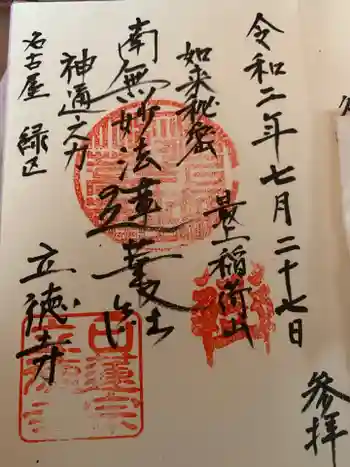 令和二年七月二十七日
如来秘密
最上稲荷山
南無妙法蓮華経
神通之力
立徳寺
名古屋 緑区
参拝